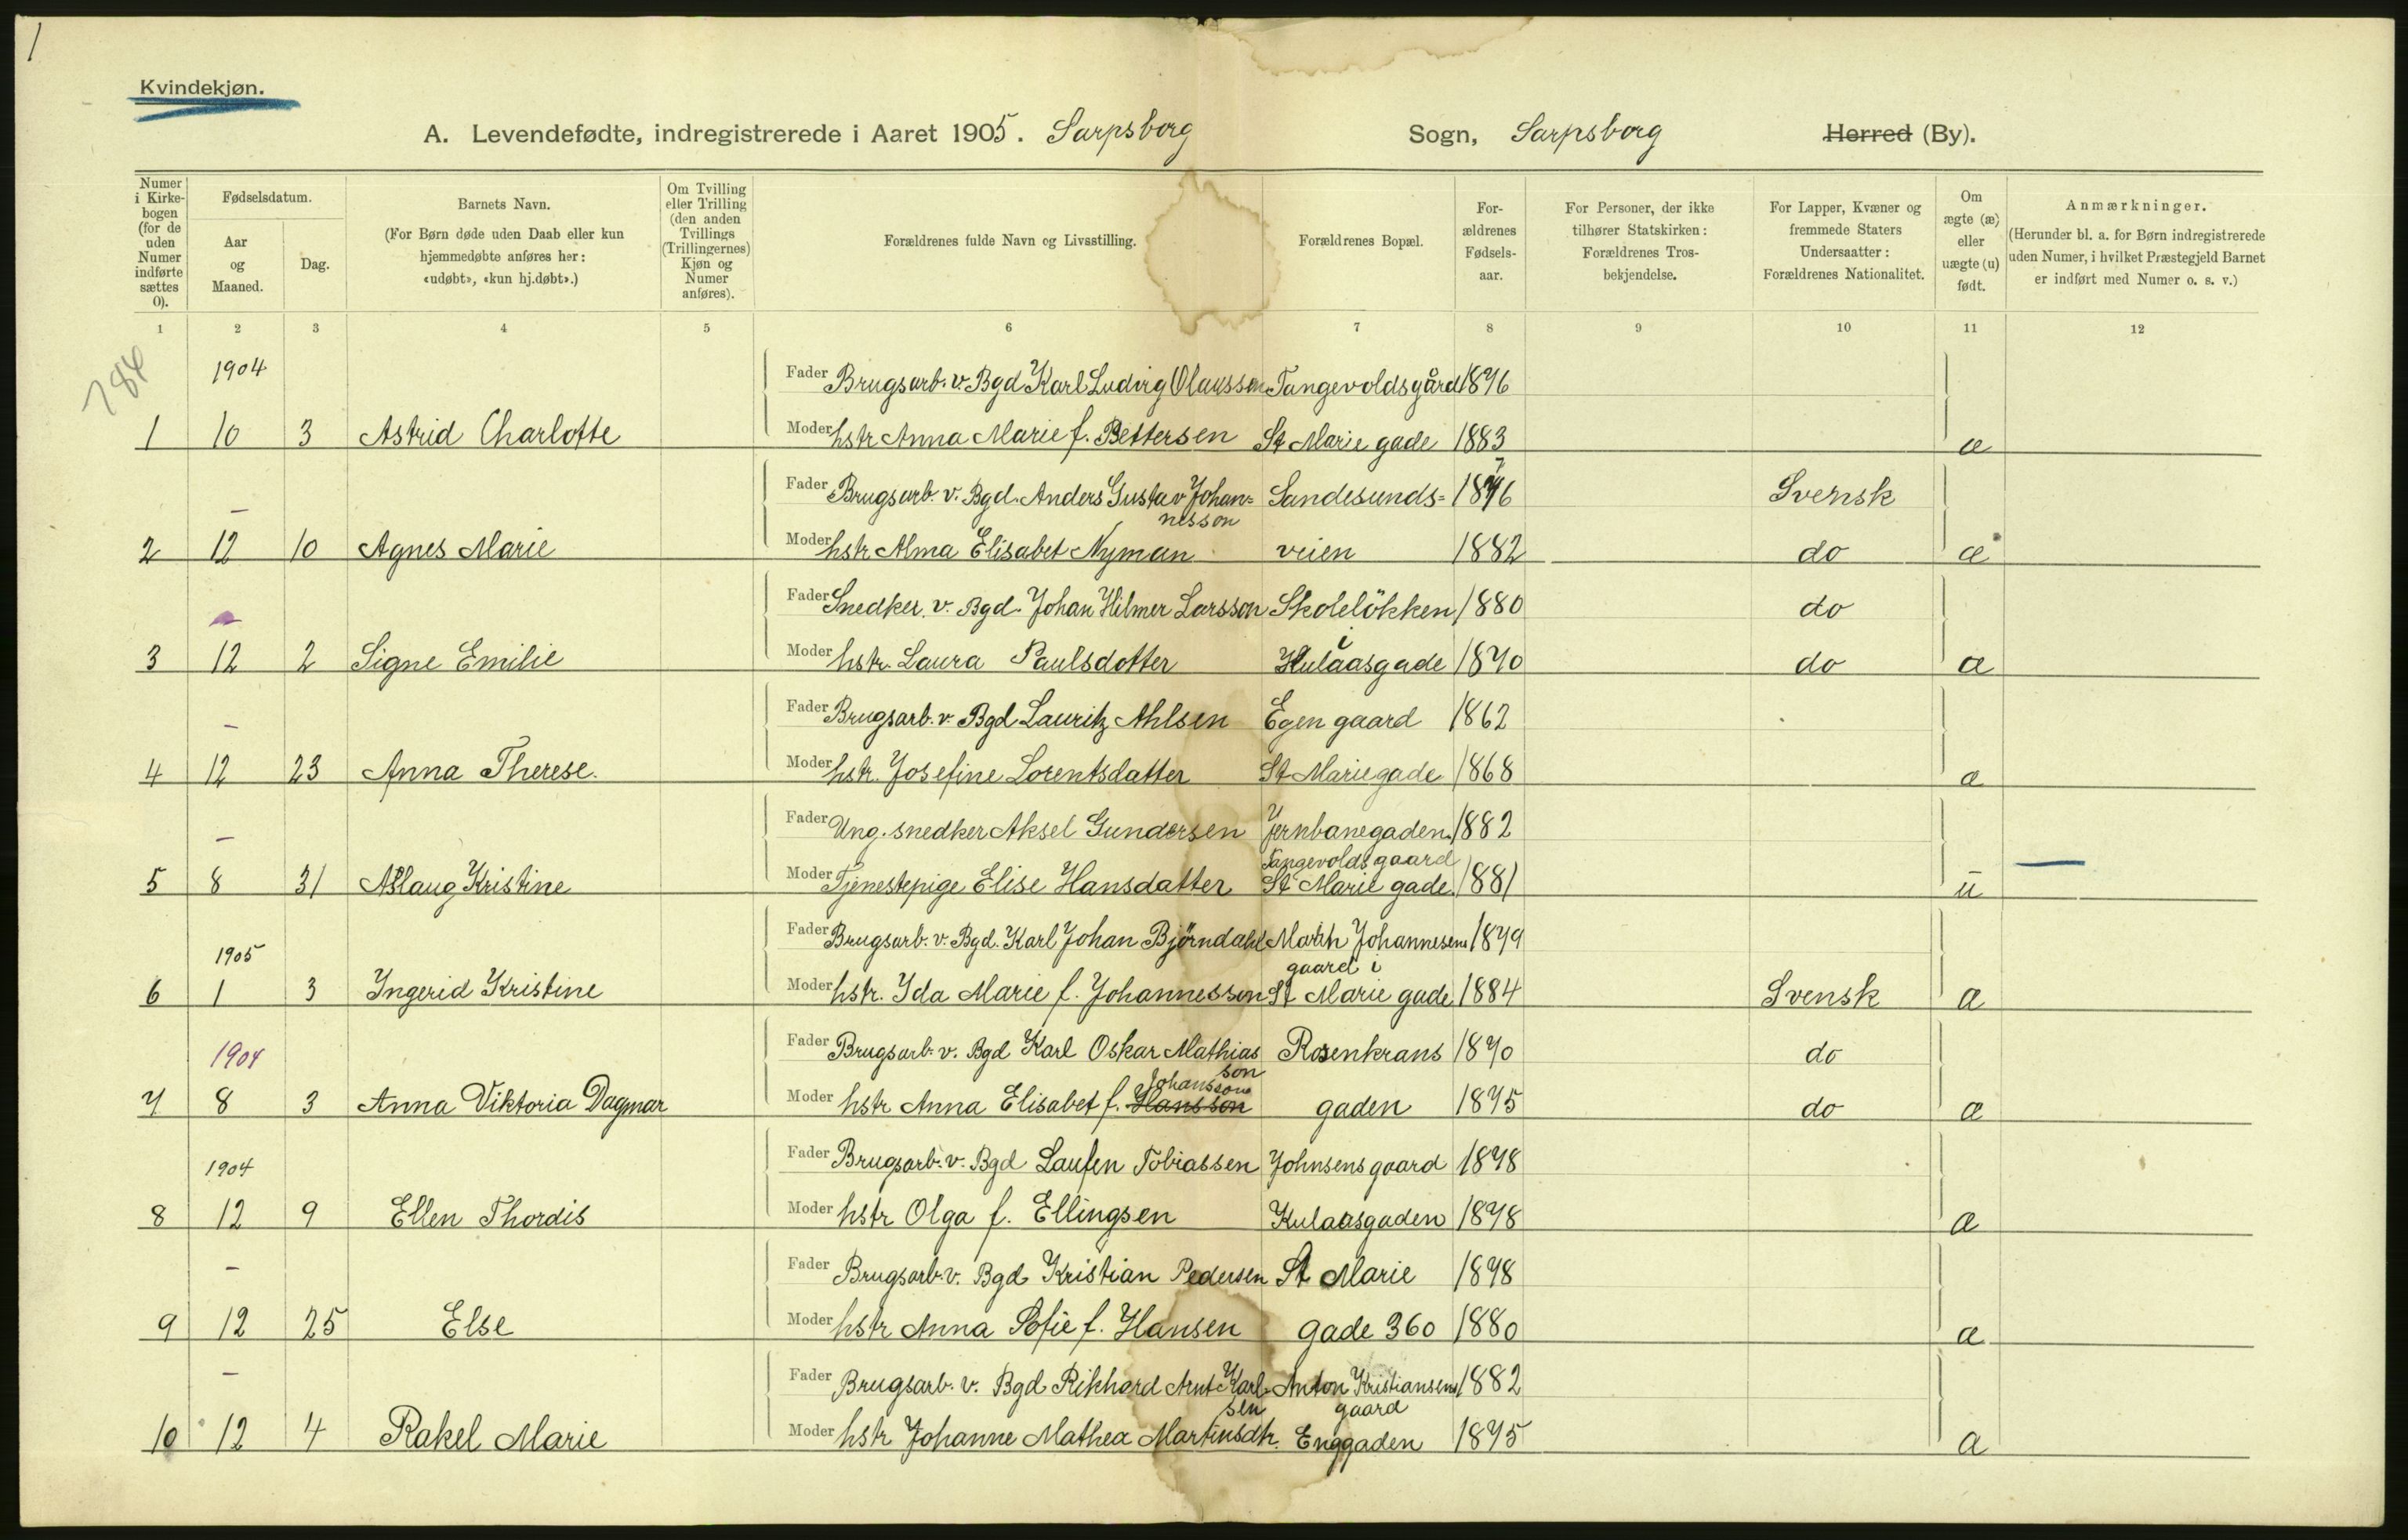 1
Kvindekjøn.
A. Levendefødte, indregistrerede i Aaret 1905. Sarpsborg Sogn, Sarpsborg Herred (By).
Numer i Kirkebogen (for de uden Numer indførte sættes 0).
Fødselsdatum.
Aar og Maaned.
Dag.
Barnets Navn.
(For Børn døde uden Daab eller kun hjemmedøbte anføres her: «udøbt», «kun hj.døbt».)
Om Tvilling eller Trilling (den anden Tvillings (Trillingernes) Kjøn og Numer anføres).
Forældrenes fulde Navn og Livsstilling.
Forældrenes Bopæl.
For-ældrenes Fødsels-aar.
For Personer, der ikke tilhører Statskirken: Forældrenes Tros-bekjendelse.
For Lapper, Kvæner og fremmede Staters Undersaatter: Forældrenes Nationalitet.
Om ægte (æ) eller uægte (u) født.
Anmærkninger.
(Herunder bl. a. for Børn indregistrerede uden Numer, i hvilket Præstegjeld Barnet er indført med Numer o. s. v.)
1 2 3 4 5 6 7 8 9 10 11 12
784
1904 Fader Brugsarb. v. Bgd Karl Ludvig Olaussen Tangevoldsgård 1876
1 10 3 Astrid Charlotte Moder hstr Anna Marie f. Bettersen St Marie gade 1883 æ
– Fader Brugsarb. v. Bgd. Anders Gustav Johan= Sandesunds= 1876 Svensk
nesson
2 12 10 Agnes Marie Moder hstr Alma Elisabet Nyman veien 1882 do æ
– Fader Snedker. v. Bgd. Johan Hilmer Larsson Skoleløkken 1880 do
i
3 12 2 Signe Emilie Moder hstr. Laura Paulsdotter Kulaasgade 1870 do æ
– Fader Brugsarb. v. Bgd Lauritz Ahlsen Egen gaard 1862
4 12 23 Anna Therese. Moder hstr. Josefine Lorentsdatter St Mariegade 1868 æ
– Fader Ung. snedker Aksel Gundersen Jernbanegaden. 1882
Tangevolds gaard
5 8 31 Aslaug Kristine Moder Tjenestepige Elise Hansdatter St Marie gade. 1881 u –
1905 Fader Brugsarb. v. Bgd. Karl Johan Bjørndahl Johannesens 1879
gaard i
6 1 3 Ingerid Kristine Moder hstr. Ida Marie f. Johannesson St Marie gade 1884 Svensk æ
1904 Fader Brugsarb. v. Bgd Karl Oskar Mathias Rosenkrans 1870 do
son
Johansson
7 8 3 Anna Viktoria Dagmar Moder hstr Anna Elisabet f. Hansson gaden 1875 do æ
1904 Fader Brugsarb. v. Bgd Laufen Tobiassen Johnsens gaard 1878
8 12 9 Ellen Thordis Moder hstr Olga f. Ellingsen Kulaasgaden 1878 æ
– Fader Brugsarb. v. Bgd Kristian Pedersen St Marie 1878
9 12 25 Else Moder hstr Anna Sofie f. Hansen gade 360 1880 æ
– Fader Brugsarb. v. Bgd Rikhard Arnt Karl- Anton Kristiansens 1882
sen gaard
10 12 4 Rakel Marie Moder hstr Johanne Mathea Martinsdtr. Enggaden 1875 æ